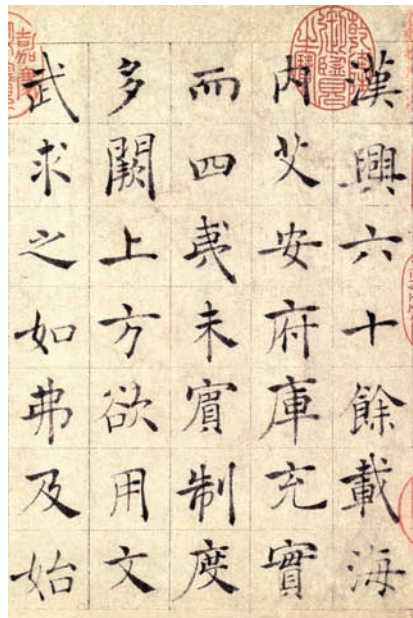 漢興六十餘載海
内艾安府庫充實
而四夷未賓制度
多闕上方欲用文
武求之如弗及始
乾隆御覽之寶